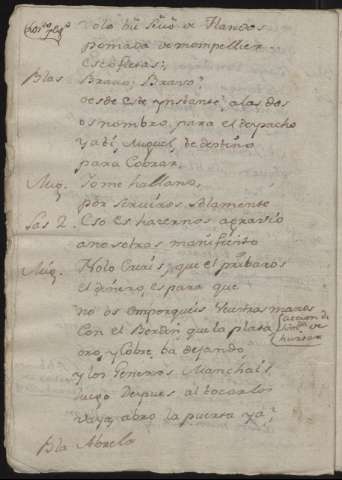 solo hu hilo de Flandes
pomada de mompellier
escofietas;
Blas Bravo; Bravo;
desde este ynstante, a las dos
os nombro, para el despacho
y a ti, Miguel, te destino
para Cobrar.
Mig. Yo me hallano,
por serviros solamente
Las 2. Eso es hacernos agravio
a nosotras manifiesto
Mig. No lo Creais, que el pribaros
el dinero, es para que
no os emporqueis vuestras manos
Con el Bordón, que la plata
oro, y Cobre, ba dejando
y los Generos Manchais,
luego despues al tocarlos
vaya, abro la puerta ya?
Bla Abrela